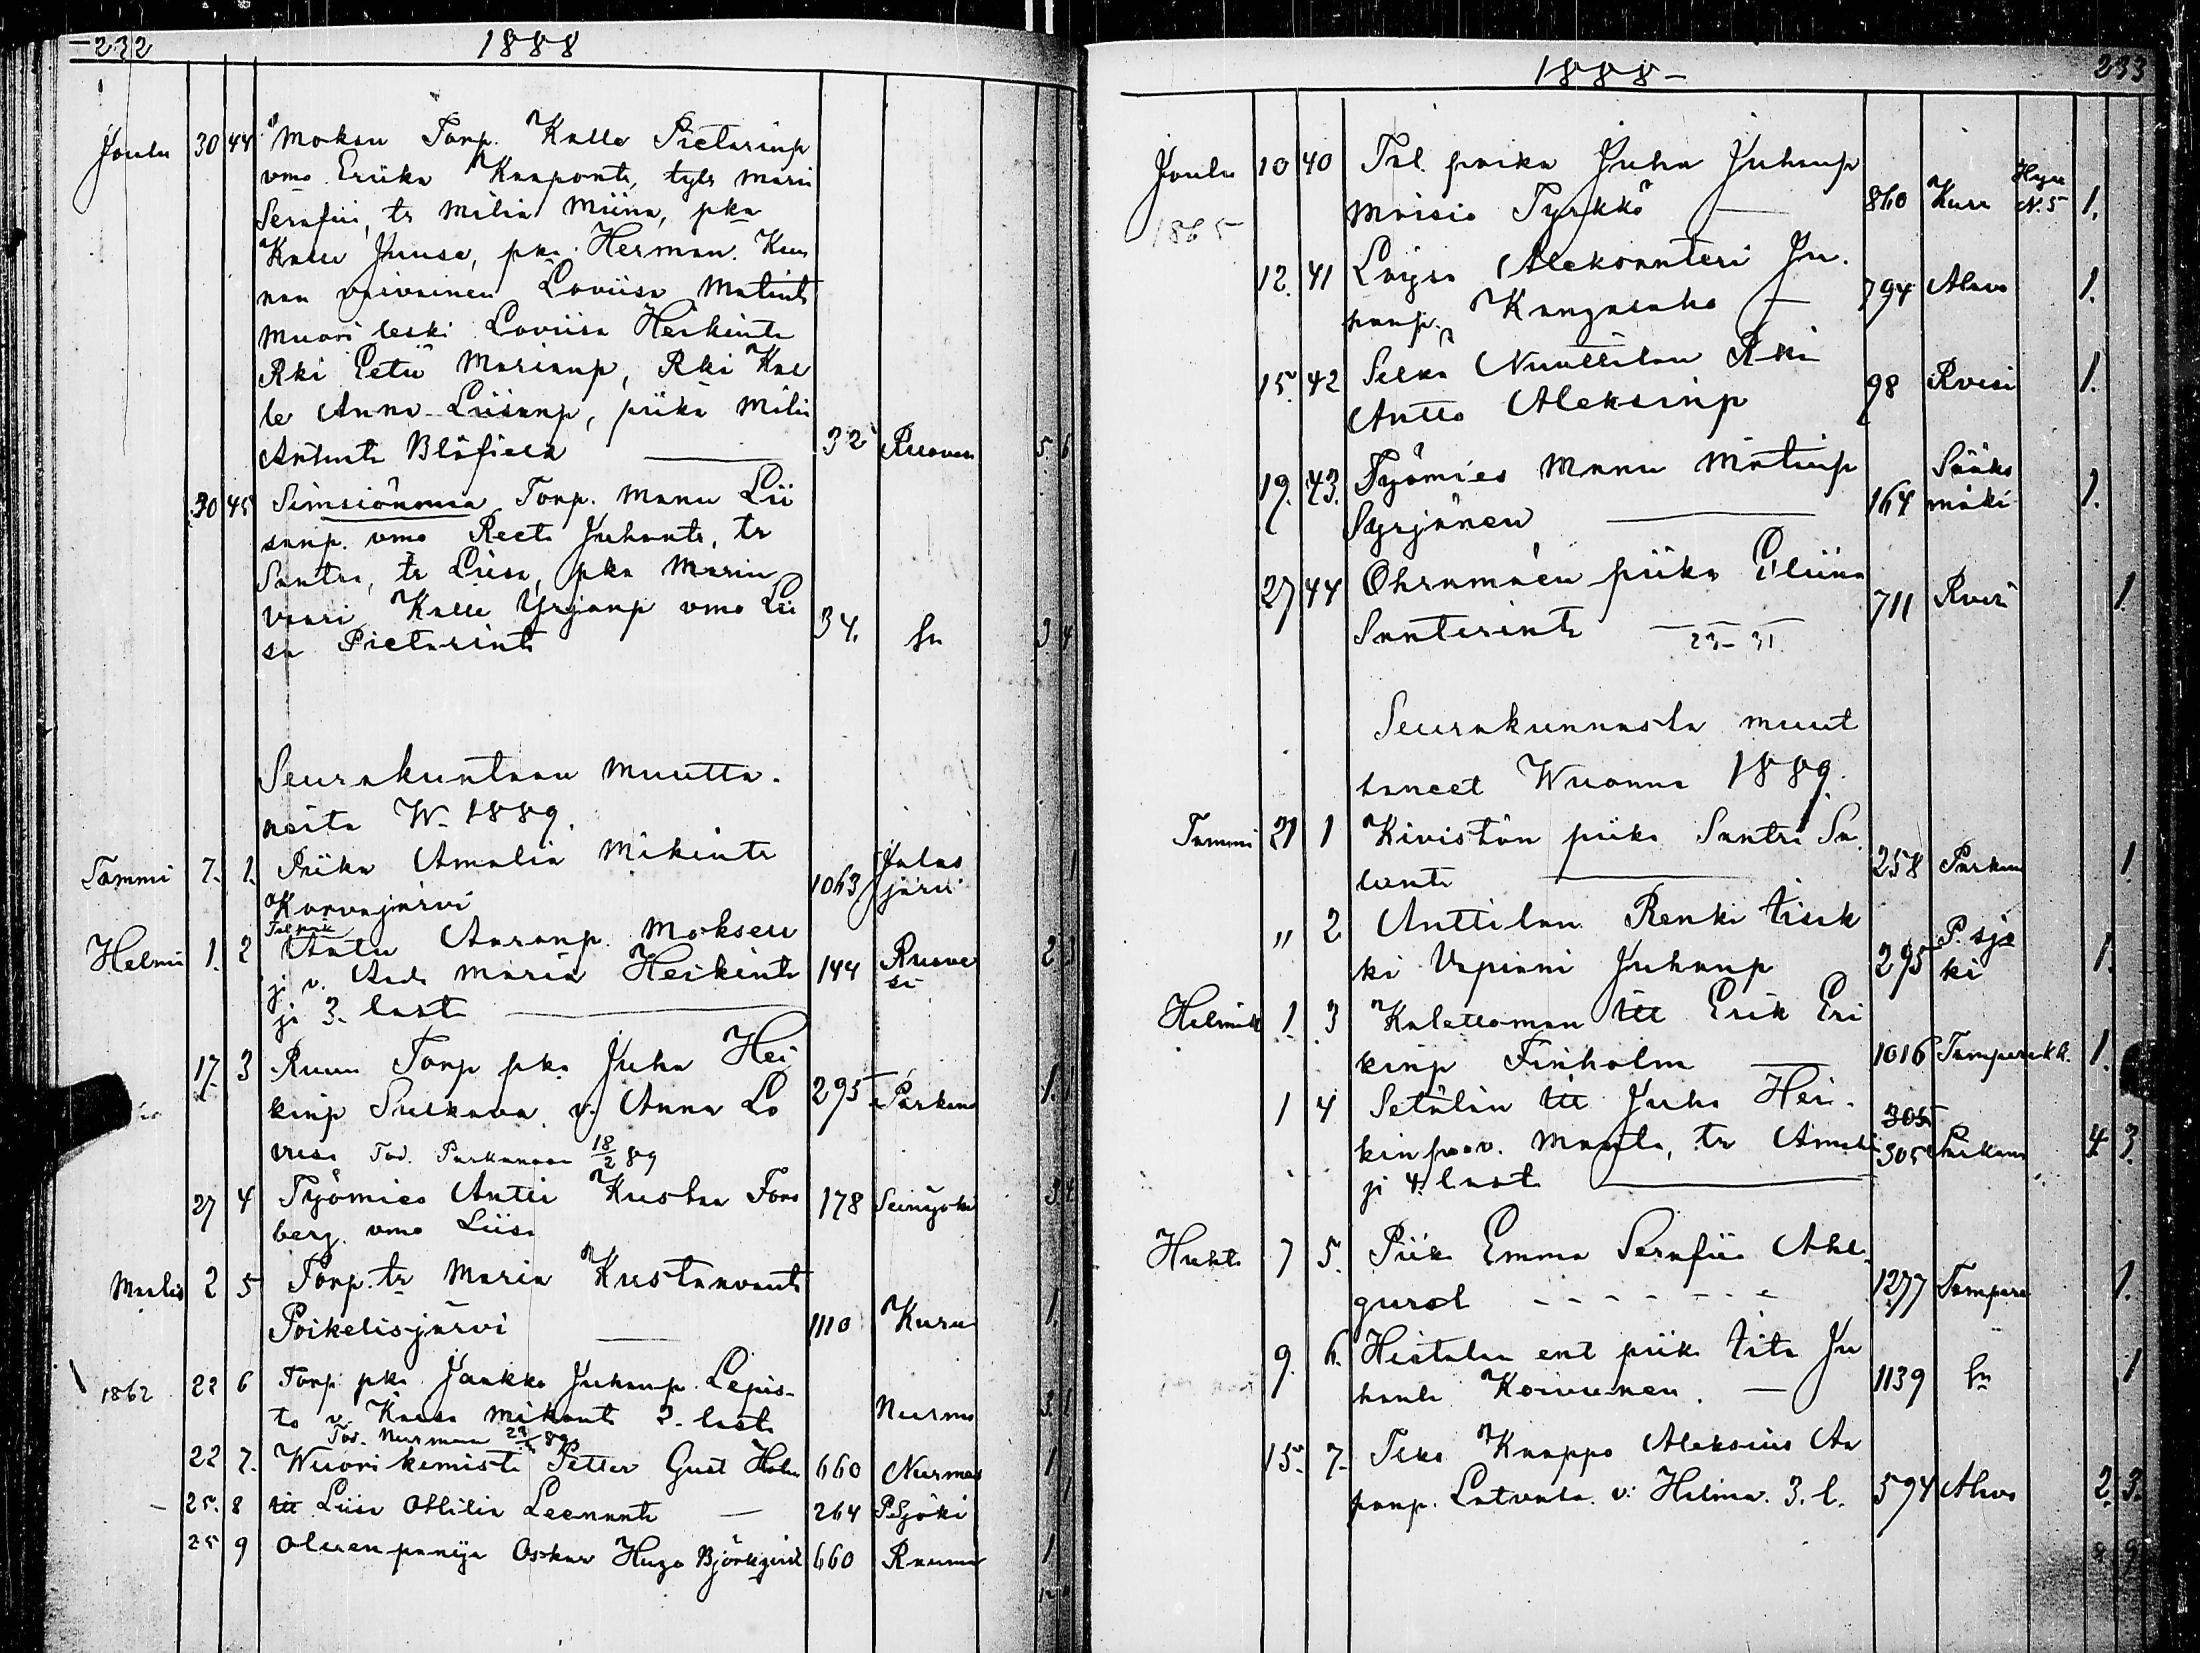 232 1888
Joulu 30 44 Moksu Torp. Kalle Pietarinp
vmo Eriika Kaaponts, tytr Maria
Serafii, tr Milia Miina, pka
Kalle Juuse, pka Herman. Kun
nan vaivainen Loviisa Matints
Muori leski Loviisa Heikints
Rki Eetu Marianp, Rki Kal
le Anna-Liisanp, piika Milia
Antints Blåfield 32 Ruoves 5 6
30 45 Simsiönmaa Torp. Manu Lii
sanp. vmo Reeta Juhants, tr
Santra, tr Liisa, pka Maria
vaari Kalle Yrjönp vmo Lii
sa Pietarints 34. Sn 3 4
Seurakuntaan Muutta-
neita W. 1889.
Tammi 7. 1. Piika Amalia Mikints 1063 Jalas 1
Korvajärvi järvi
Helmi 1. 2 Antu Aaranp. Moksen
ja v. Aed. Maria Heikints 144 Ruove 2 3
ja 3. last si
17. 3 Ruun Torp pka Juha Hei
kinp Sulkava v. Anna Lo 295 Parkano 1. 1
visa Tod. Parkanoon 18/2 89
27 4 Työmies Antti Kustaa Fors 178 Seinäjoki 3 4
berg. vmo Liisa
Maalis 2 5 Torp. tr Maria Kustaavants
Poikelisjärvi 1110 Kuru 1.
1862 22 6 Torp. pka Jaakko Juhanp. Lepis-
to v. Kaisa Mikonts 2. last Nurmo 3 1
Tod. Nurmoon 89
22 7. Wuorikemisti Petter Gust Holm 660 Nurmes 1
25. 8 itt Liisa Ottilia Leenants 264 PSjöki 1
25 9 Oluenpanija Oskar Hugo Björkqvist 660 Rauma 1
1888- 233
Joulu 10 40 Tal. poika Juha Juhanp
1865 Maisio Tyrkkö 860 Kuru N. 5 1.
12. 41 Loysa Aleksanteri Ju-
hanp. Kangasaho 794 Alavo 1.
15. 42 Selka Nuuttilan Rki
Antto Aleksinp 98 Rvesi 1.
19. 43. Työmies Manu Matinp Sääks
Syrjänen 164 mäki 1.
27 44 Ohramäen piika Eliina 711 Rvesi 1
Santerints 23-31
Seurakunnasta muut
taneet Wuonna 1889.
Tammi 21 1 Kivistön piika Santra Sa-
lants 258 Parkano 1
" 2 Anttilan Renki Iisak
ki Vapiani Juhanp 295 P. sjo 1.
ki
Helmik 1 3 Kalettoman itt Erik Eri
kinp Finholm 1016 Tamperekk. 1.
1 4 Setälän itt Juho Hei- 305
kinp v. Manta, tr Amali 305 Parkano 4 3
ja 4 last
Huhti 7 5. Piika Emma Serafiia Ahl-
gvist 1277 Tampere 1.
9. 6. Hietalan ent piika Iita Ju
hants Koivunen. 1139 Sn 1
15. 7. Tlko Kaappo Aleksius Aa
panp. Latvala. v: Hilma. 3. l. 594 Alavo 2. 3.
8 9